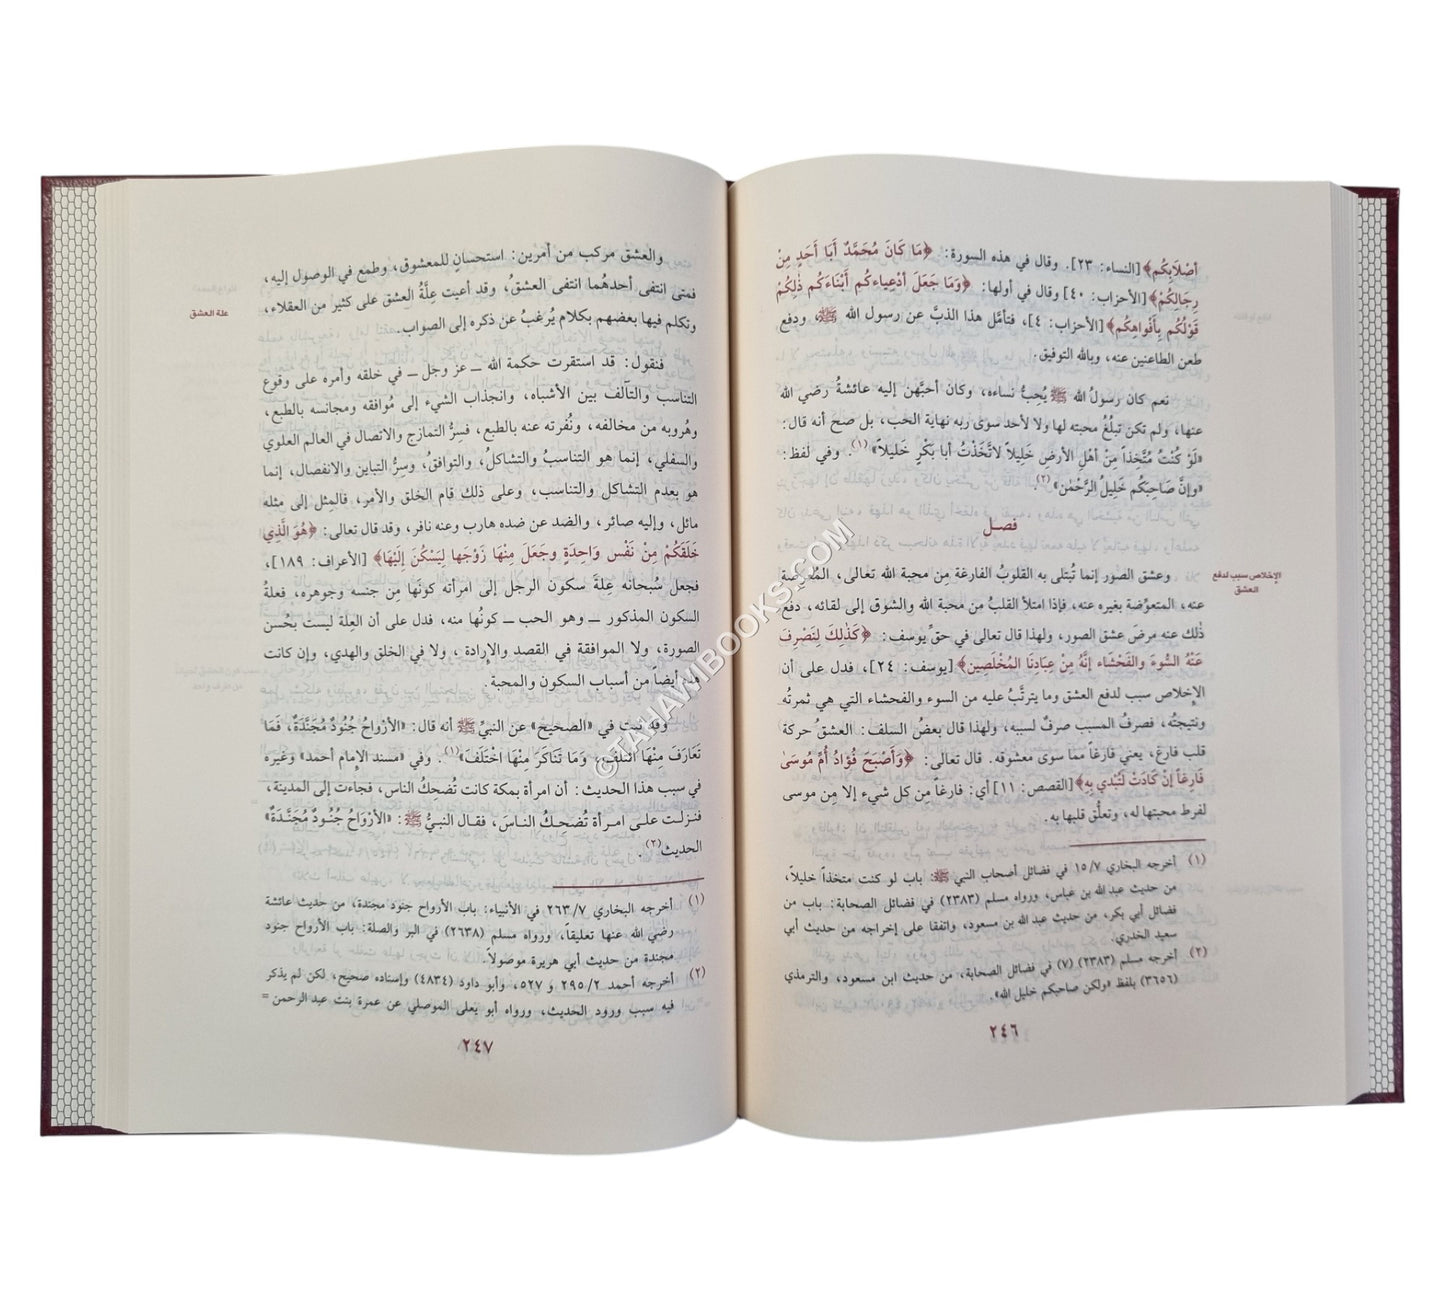 أصْلَابِكُم﴾ [النساء: ٢٣]. وقال في هذه السورة: ﴿مَا كَانَ مُحَمَّدٌ أَبَا أَحَدٍ مِنْ
رِجَالِكُمْ﴾ [الأحزاب: ٤٠] وقال في أولها: ﴿وَمَا جَعَلَ أَدْعِيَاءَكُم أَبْنَاءَكُم ذٰلِكُمْ
قَوْلُكُم بِأَفْوَاهِكُم﴾ [الأحزاب: ٤]، فتأمَّل هذا الذبَّ عن رسول الله ﷺ، ودفع
طعن الطاعنين عنه، وبالله التوفيق.
نعم كان رسولُ الله ﷺ يُحِبُّ نساءه، وكان أحبَّهن إليه عائشةُ رضي الله
عنها، ولم تكن تبلُغُ محبته لها ولا لأحد سوى ربه نهاية الحب، بل صح أنه قال:
«لَوْ كُنْتُ مُتَّخِذاً مِنْ أَهْلِ الأرضِ خَلِيلاً لاتَّخَذْتُ أبا بَكْرٍ خَلِيلاً»(١). وفي لفظ:
«وإنَّ صَاحِبَكُم خَلِيلُ الرَّحْمٰن»(٢).
فصـل
الإخلاص سبب لدفع
العشق
وعشق الصور إنما تُبتلى به القلوبُ الفارغة مِن محبة الله تعالى، المُعْرِضة
عنه، المتعوِّضة بغيره عنه، فإذا امتلأ القلبُ من محبة الله والشوق إلى لقائه، دفع
ذٰلك عنه مرضَ عشق الصور، ولهذا قال تعالى في حقِّ يوسف: ﴿كَذٰلِكَ لِنَصْرِفَ
عَنْهُ السُّوءَ والفَحْشَاء إنَّهُ مِنْ عِبَادِنَا المُخْلَصِين﴾ [يوسف: ٢٤]، فدل على أن
الإخلاص سبب لدفع العشق وما يترتَّبُ عليه من السوء والفحشاء التي هي ثمرتُه
ونتيجتُه، فصرفُ المسبب صرفٌ لسببه، ولهذا قال بعضُ السلف: العشقُ حركة
قلب فارغ، يعني فارغاً مما سوى معشوقه. قال تعالى: ﴿وَأَصْبَحَ فُؤَادُ أُمِّ مُوسَىٰ
فَارِغاً إنْ كَادَتْ لَتُبْدِي بِهِ﴾ [القصص: ١١] أي: فارغاً من كل شيء إلا مِن موسى
لفرط محبتها له، وتعلُّق قلبها به.
(١) أخرجه البخاري ١٥/٧ في فضائل أصحاب النبي ﷺ: باب لو كنت متخذاً خليلاً،
من حديث عبد الله بن عباس، ورواه مسلم (٢٣٨٣) في فضائل الصحابة: باب من
فضائل أبي بكر، من حديث عبد الله بن مسعود، واتفقا على إخراجه من حديث أبي
سعيد الخدري.
(٢) أخرجه مسلم (٢٣٨٣) (٧) في فضائل الصحابة، من حديث ابن مسعود، والترمذي
(٣٦٥٦) بلفظ «ولكن صاحبكم خليل الله».
٢٤٦
والعشق مركب من أمرين: استحسانٍ للمعشوق، وطمع في الوصول إليه،
فمتى انتفى أحدهُما انتفى العشقُ، وقد أعيت عِلَّةُ العشق على كثير من العقلاء،
علة العشق
وتكلم فيها بعضهم بكلام يُرغبُ عن ذكره إلى الصواب.
فنقول: قد استقرت حكمة الله ــ عز وجل ــ في خلقه وأمره على وقوع
التناسب والتآلف بين الأشباه، وانجذاب الشيء إلى مُوافقه ومجانسه بالطبع،
وهُروبه من مخالفه، ونُفرته عنه بالطبع، فسِرُّ التمازج والاتصال في العالم العلوي
والسفلي، إنما هو التناسبُ والتشاكلُ، والتوافقُ، وسِرُّ التباين والانفصال، إنما
هو بعدم التشاكل والتناسب، وعلى ذلك قام الخلق والأمر، فالمِثل إلى مثله
مائل، وإليه صائر، والضد عن ضده هارب وعنه نافر، وقد قال تعالى: ﴿هُوَ الَّذِي
خَلَقَكُمْ مِنْ نَفْسٍ وَاحِدَةٍ وجَعَلَ مِنْهَا زَوْجَها لِيَسْكُنَ إِلَيْهَا﴾ [الأعراف: ١٨٩]،
فجعل سُبحانه عِلةَ سكون الرجل إلى امرأته كونَها مِن جنسه وجوهره، فعلةُ
السكون المذكور ــ وهو الحب ــ كونُها منه، فدل على أن العِلة ليست بحُسن
الصورة، ولا الموافقة في القصد والإرادة، ولا في الخلق والهدي، وإن كانت
هذه أيضاً من أسباب السكون والمحبة.
وقد ثبت في «الصحيح» عن النبيِّ ﷺ أنه قال: «الأرْواحُ جُنُودٌ مُجَنَّدَةٌ، فَمَا
تَعَارَفَ مِنْهَا ائتَلَفَ، وَمَا تَنَاكَرَ مِنْهَا اخْتَلَفَ»(١). وفي «مسند الإمام أحمد» وغيره
في سبب هذا الحديث: أن امرأة بمكة كانت تُضحِكُ الناس، فجاءت إلى المدينة،
فنزلت على امرأة تُضحِكُ الناسَ، فقال النبيُّ ﷺ: «الأرْوَاحُ جُنُودٌ مُجَنَّدَةٌ»
الحديث(٢).
(١) أخرجه البخاري ٢٦٣/٧ في الأنبياء: باب الأرواح جنود مجندة، من حديث عائشة
رضي الله عنها تعليقاً، ورواه مسلم (٢٦٣٨) في البر والصلة: باب الأرواح جنود
مجندة من حديث أبي هريرة موصولاً.
(٢) أخرجه أحمد ٢٩٥/٢ و ٥٢٧، وأبو داود (٤٨٣٤) وإسناده صحيح، لكن لم يذكر
فيه سبب ورود الحديث، ورواه أبو يعلى الموصلي عن عمرة بنت عبد الرحمن =
٢٤٧
© TAHAWIBOOKS.COM